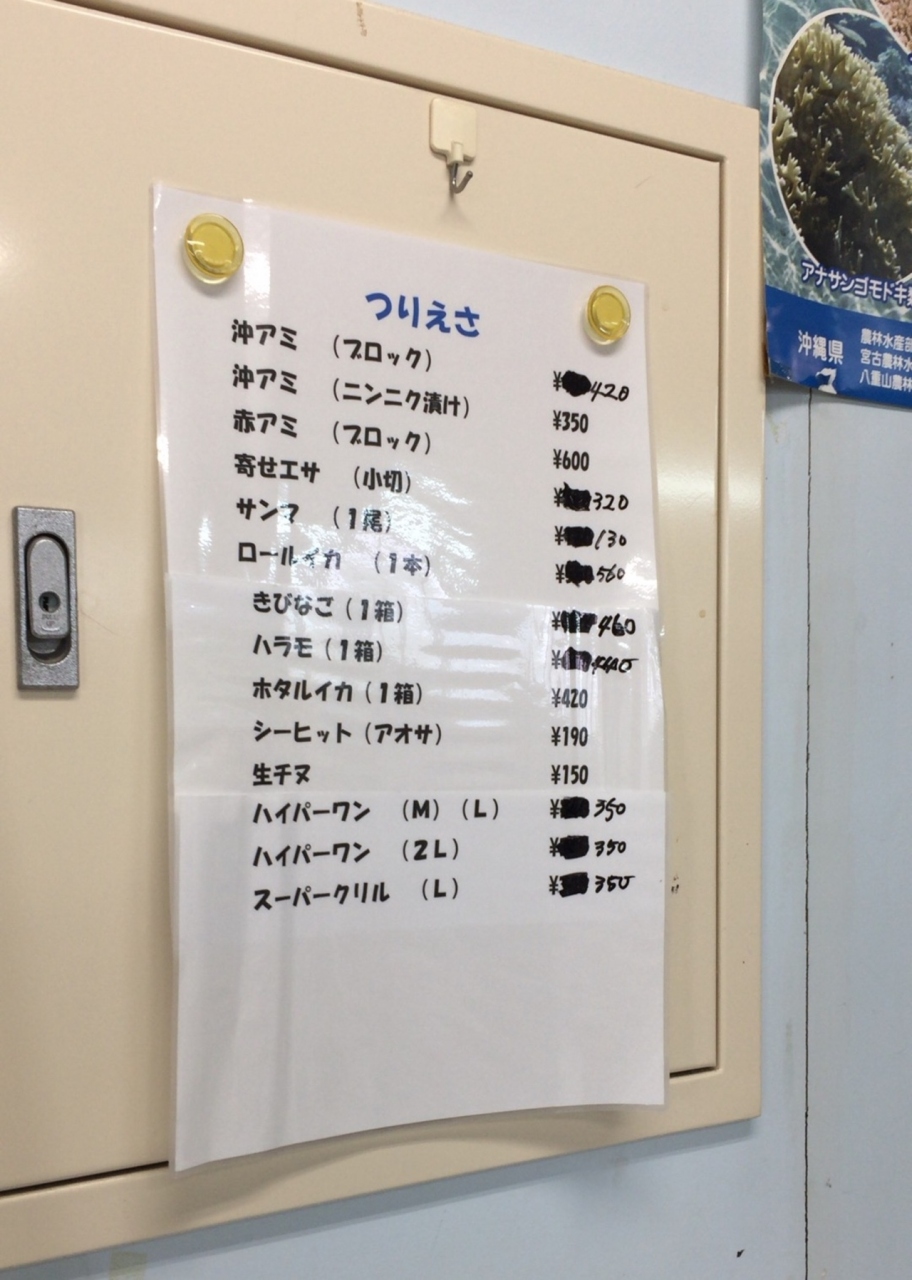 つりえさ
沖アミ （ブロック） ¥420
沖アミ （ニンニク漬け） ¥350
赤アミ （ブロック） ¥600
寄せエサ （小切） ¥320
サンマ （1尾） ¥130
ロールイカ （1本） ¥560
きびなご（1箱） ¥460
ハラモ（1箱） ¥440
ホタルイカ（1箱） ¥420
シーヒット（アオサ） ¥190
生チヌ ¥150
ハイパーワン （M）（L） ¥350
ハイパーワン （2L） ¥350
スーパークリル （L） ¥350
アナサンゴモドキ
沖縄県
農林水産部
宮古農林水
八重山農林